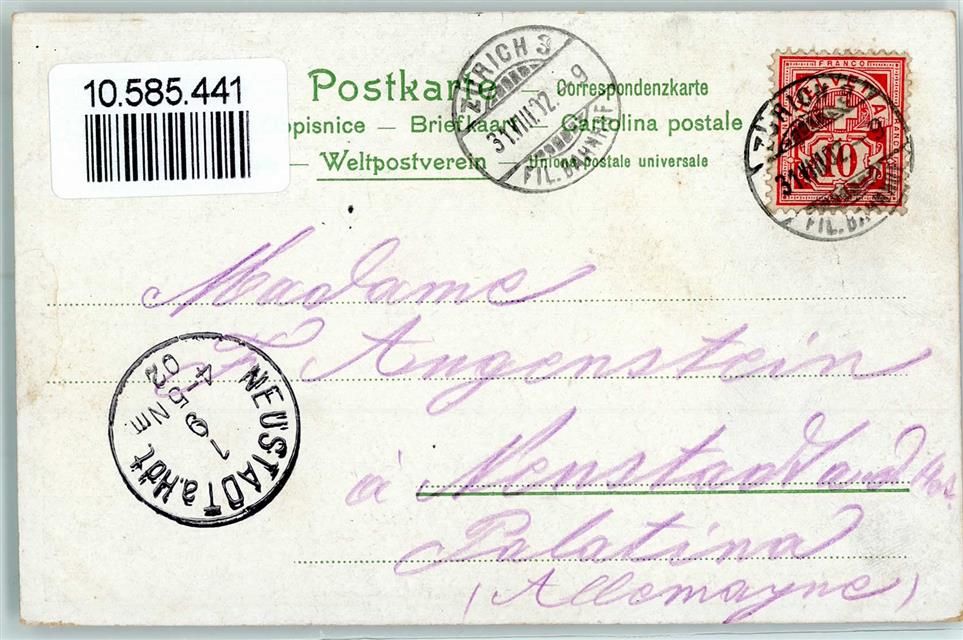 10.585.441
Postkarte — Correspondenzkarte
opisnice — Briefkaart — Cartolina postale
— Weltpostverein — Unione postale universale
ZÜRICH 3
31.VIII.02. 9
FIL. BAHNHOF
FRANCO
10
ZÜRICH
31.VIII.02.
FIL. BAHNHOF
Madame
F. Augenstein
à Neustadt
Palatina
(Allemagne)
NEUSTADT a. Hdt.
1 9
4-5 NM
02